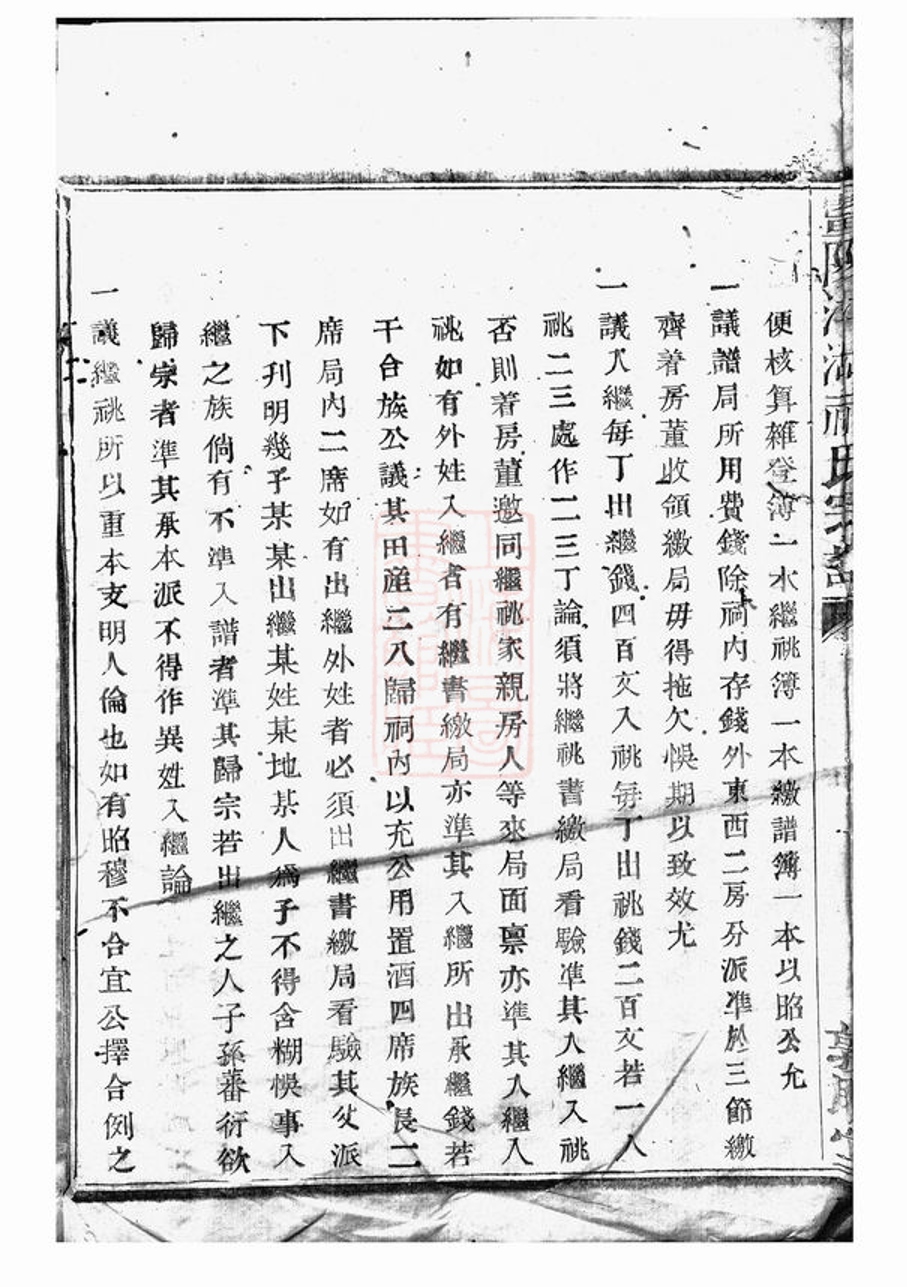 便核算雜登簿一本繼祧簿一本繳譜簿一本以昭公允
一議譜局所用費錢除祠内存錢外東西二房分派準於三節繳
齊着房董收領繳局毋得拖欠悞期以致效尤
一議入繼每丁出繼錢四百文入祧每丁出祧錢二百文若一人
祧二三處作二三丁論須將繼祧書繳局看驗準其入繼入祧
否則着房董邀同繼祧家親房人等來局面禀亦準其入繼入
祧如有外姓入繼者有繼書繳局亦準其入繼所出承繼錢若
干合族公議其田產二八歸祠内以充公用置酒四席族長二
席局内二席如有出繼外姓者必須出繼書繳局看驗其父派
下刊明幾子某某出繼某姓某地某人為子不得含糊悞事入
繼之族倘有不準入譜者準其歸宗若出繼之人子孫蕃衍欲
歸宗者準其承本派不得作異姓入繼論
一議繼祧所以重本支明人倫也如有昭穆不合宜公擇合例之